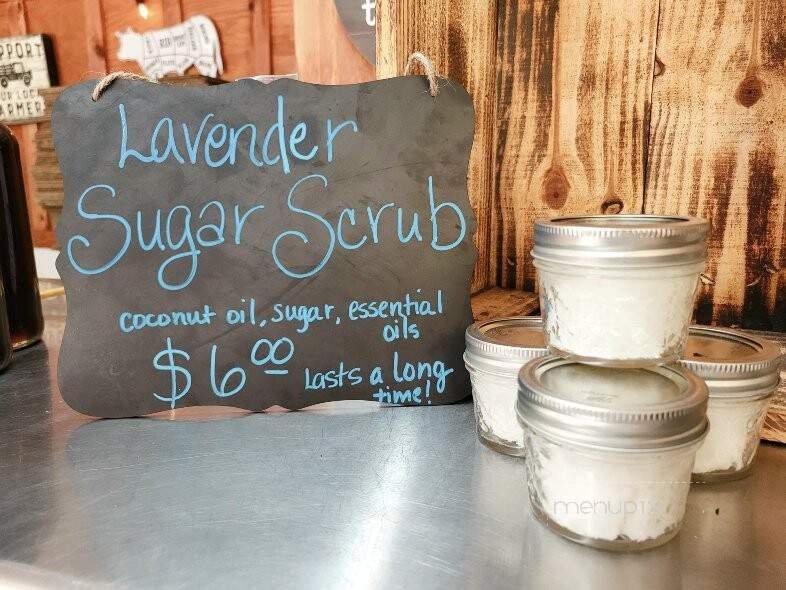 Lavender
Sugar Scrub
coconut oil, sugar, essential
oils
$6.00
Lasts a long
time!
menupix